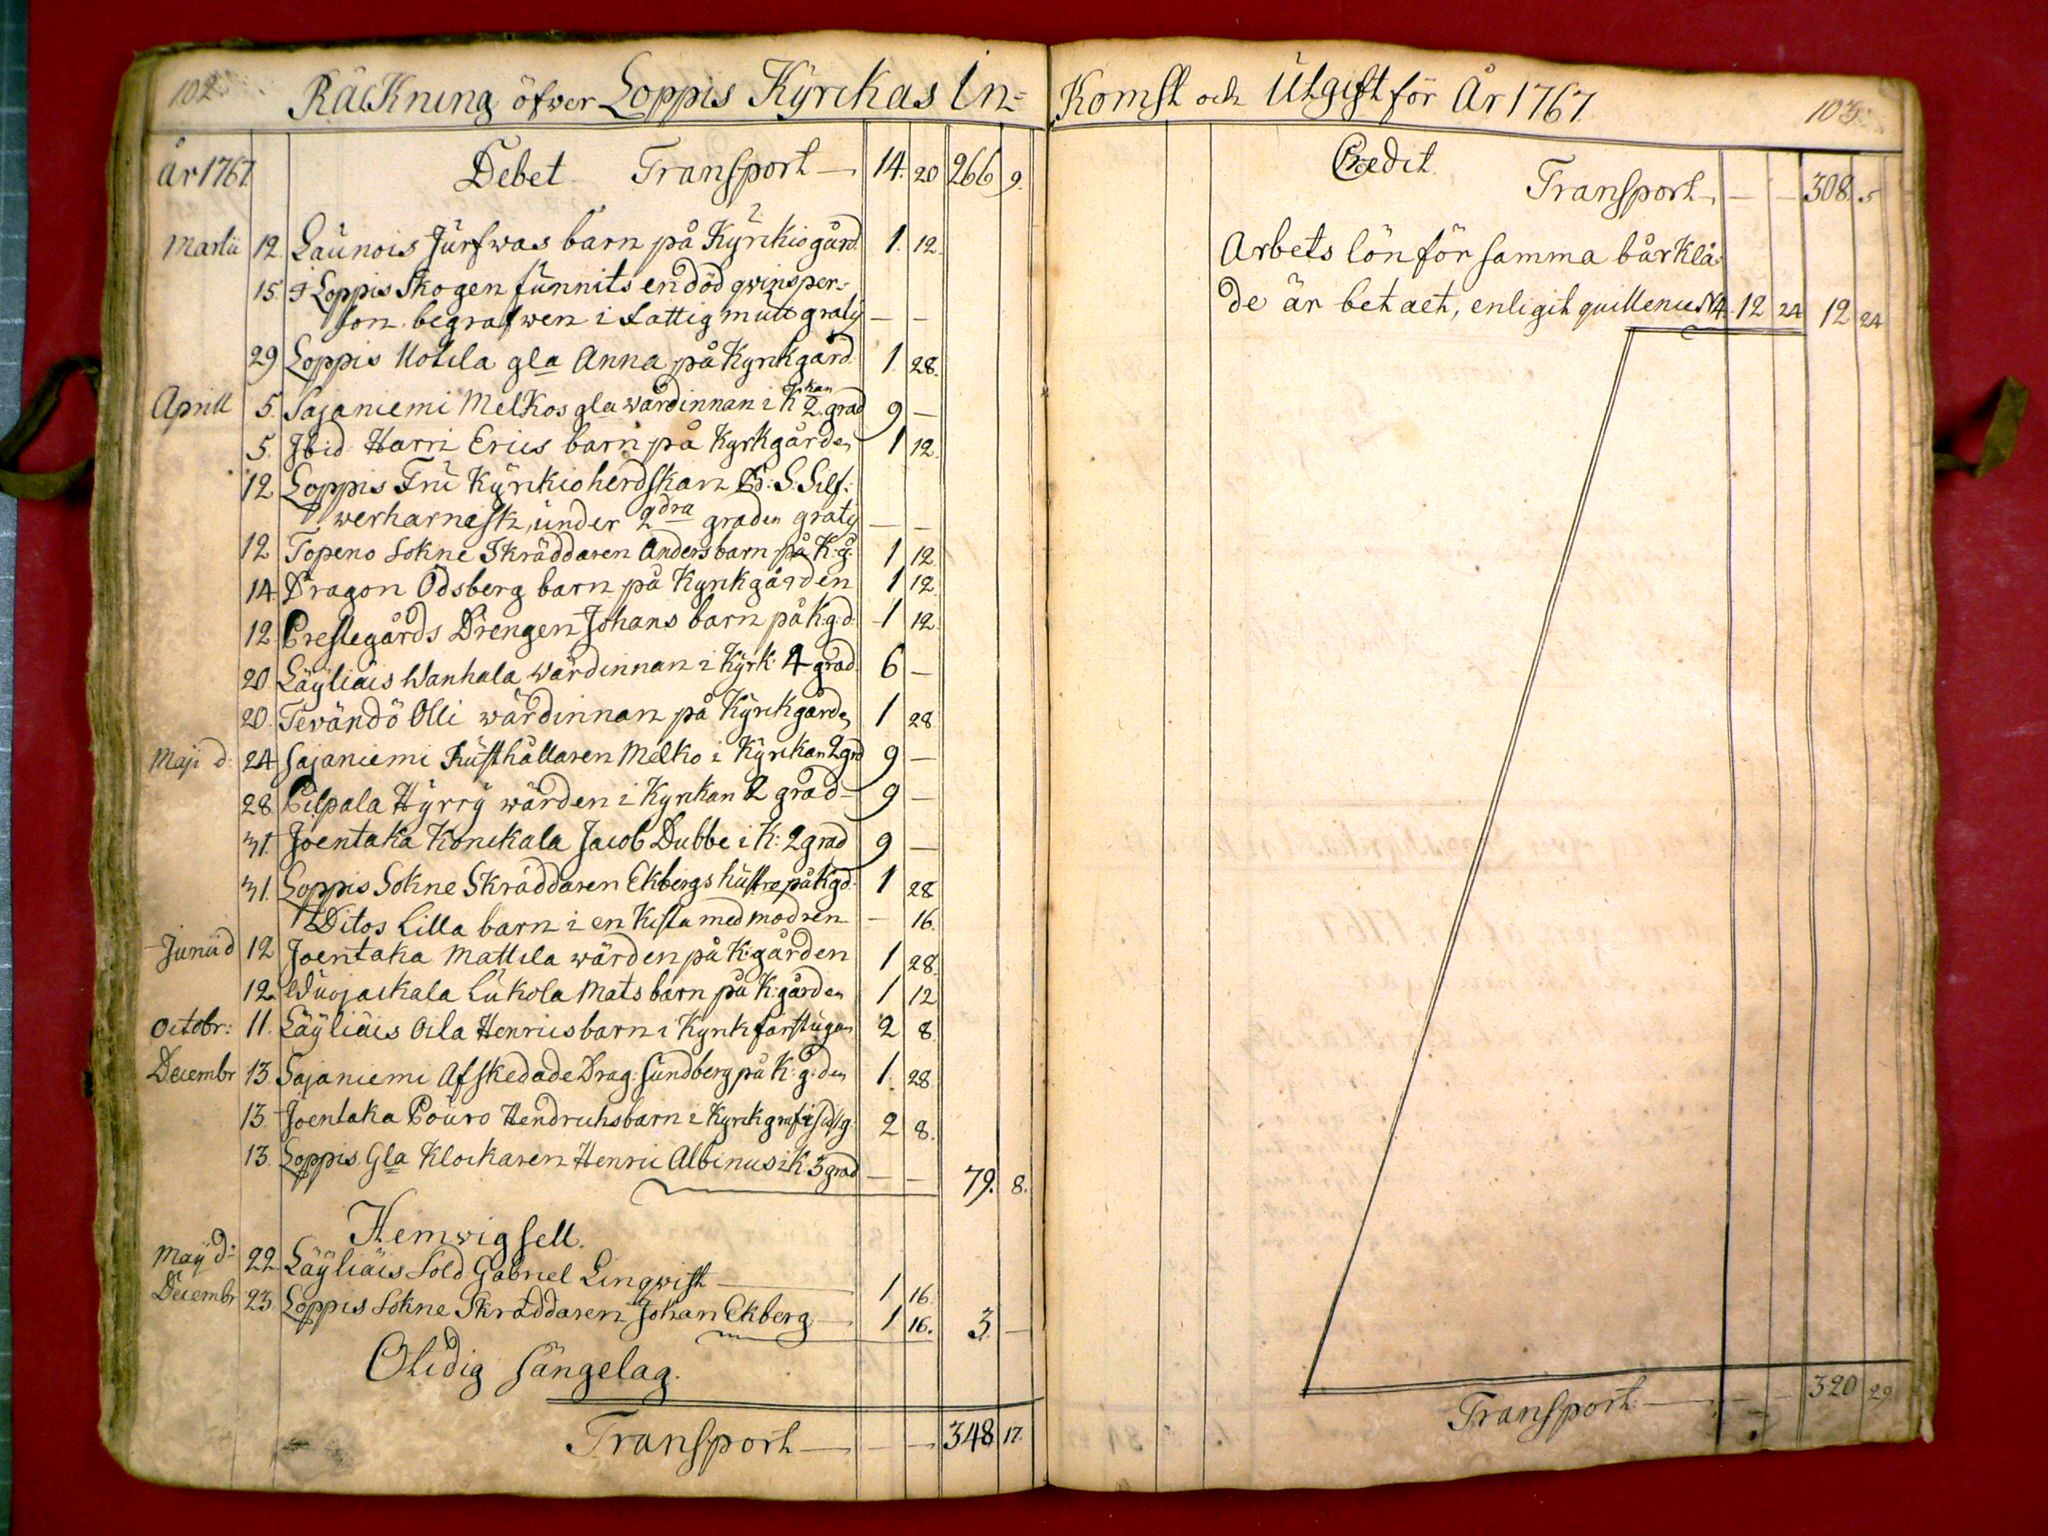 102.
Räckning öfwer Loppis Kÿrckas In=
År 1767. Debet Transport — 14. 20 266 9.
Martii 12. Launois Jürfwas barn på Kÿrckiogård. 1. 12.
15. I Loppis Skogen fünnits en död qwinsper=
son begrafwen i Fattig mull gratÿ — —
29 Loppis Uotila gla Anna på Kyrckgård. 1. 28.
Aprill 5. Sajaniemi Melkos gla wärdinnan i K kan 2 grad 9 —
5. Ibid Harri Erics barn på Kyrkgården 1 12.
12 Loppis Frü Kÿrckioherdskan Br: S. Silf:
werharnesk, ünder 2dra graden gratÿ — —
12 Topeno Sokne Skräddaren Anders barn på K: g: 1 12
14 Dragon Ödsberg barn på Kyrckgården 1 12.
12 Prestegårds Drengen Johans barn på K:g:d. 1 12.
20 Läÿliäis Wanhala wärdinnan i Kÿrk: 4 grad. 6 —
20. Tevändö Olli wärdinnan på Kÿrckgården 1 28
Maji d: 24 Sajaniemi Rüsthållaren Melko i Kÿrckan 2 grd 9 —
28. Pilpala Hÿrrÿ wärden i Kyrckan 2 grad — 9 —
31. Joentaka Konckala Jacob Dubbe i K: 2 grad 9 —
31. Loppis Sokne Skräddaren Ekbergs hüstro på Kgd. 1 28
Ditos Lilla barn i en Kista med modren — 16.
Junii d 12 Joentaka Mattila wärden på K:gården 1 28.
12. Wüojackala Lükola Mats barn på K:gården 1 12
Octobr: 11. Läÿliäis Oila Henrics barn i Kyrck farstügan 2 8.
Decembr 13. Sajaniemi Afskedade Drag: Sündberg på K: g:den 1. 28.
13. Joentaka Poüro Hendrichs barn i Kyrck 2 8.
13. Loppis Gla Klockaren Henric Albinus i K 3 grad — — 79. 8.
Hemwigsell.
Maÿ d: 22 Läÿliäis Sold Gabriel Lingwist — 1 16.
Decembr 23. Loppis Sokne Skräddaren Johan Ekberg — 1 16. 3. —
Olidig Sängelag.
Transport — — — 348 17.
103.
Komst och Utgift för År 1767.
Credit.
Transport — — — 308. 5
Arbets lön för samma bårklä=
de är betalt, enligit quittence N 4. 12 24 12 24
Transport — — — 320 29.